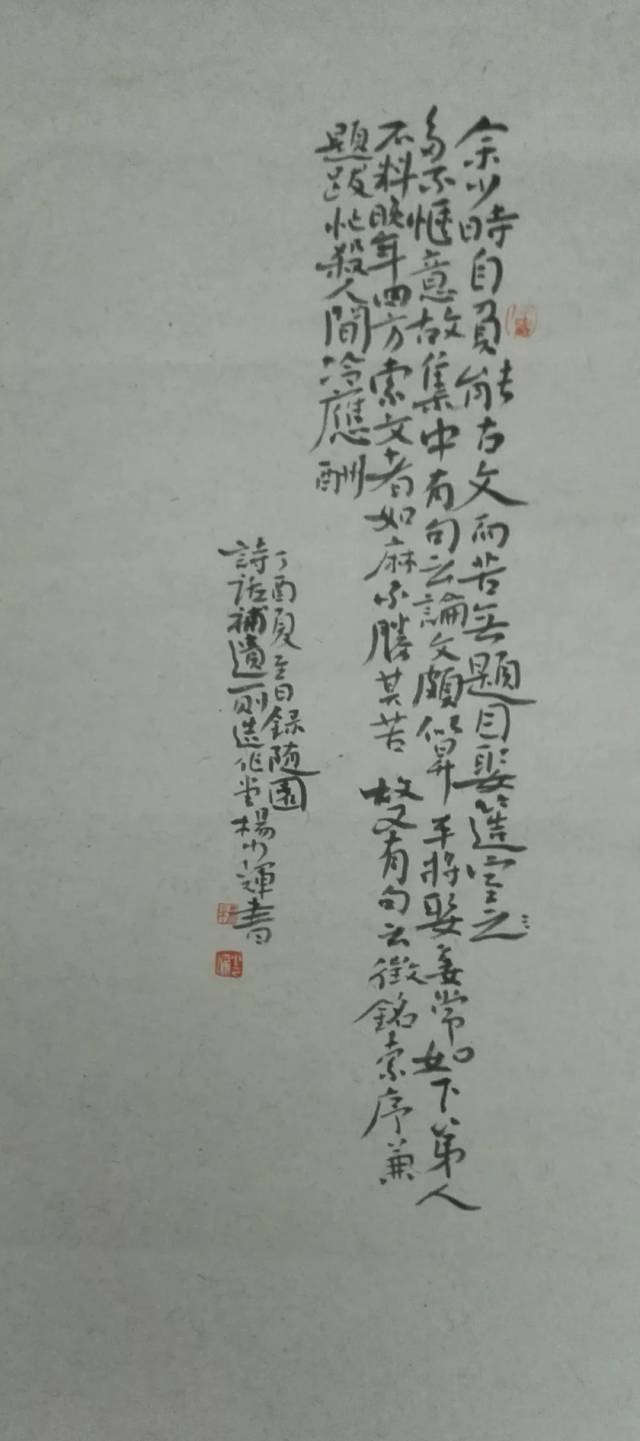 余少時自負能古文而苦無題目娶簉室之
多不愜意故集中有句云論文頗似昇平將娶妾常如下第人
不料晚年四方索文者如麻不勝其苦故又有句云徵銘索序兼
題跋忙殺人間冷應酬
丁酉夏至日録随園
詩話補遺一則造化堂楊小輝書